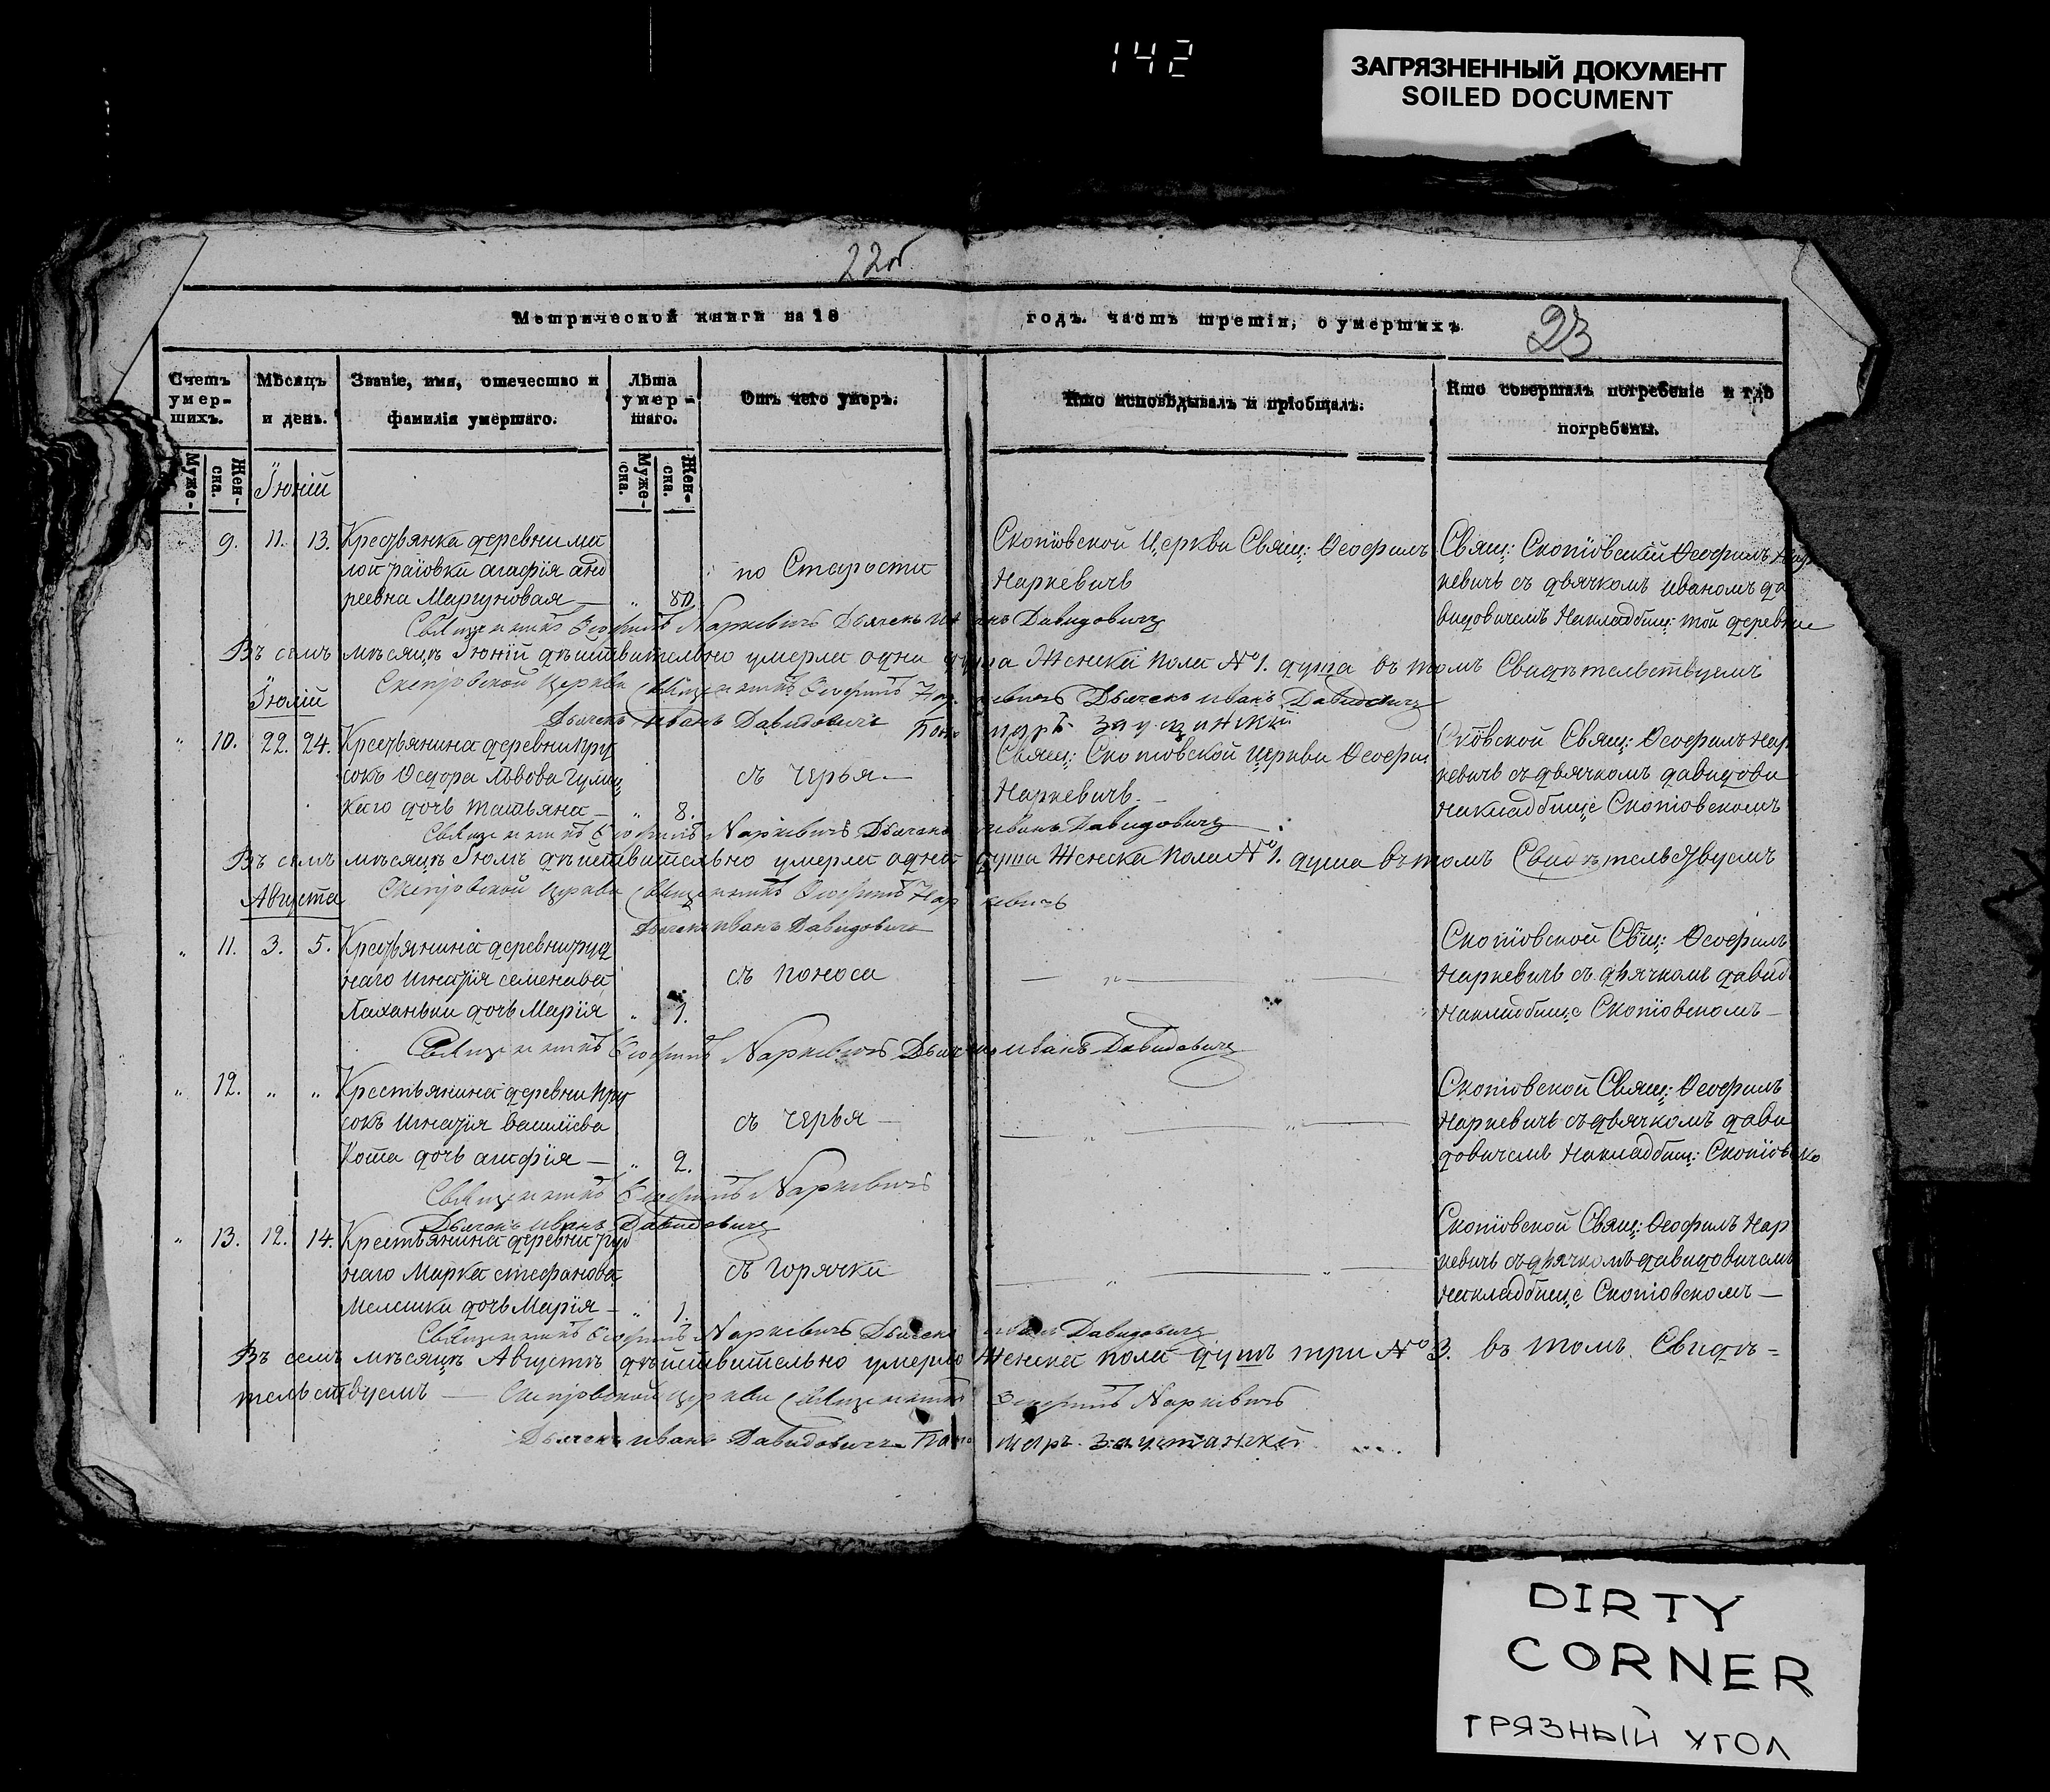 142
ЗАГРЯЗНЕННЫЙ ДОКУМЕНТ
SOILED DOCUMENT
22об
Метрической книги на 18 годъ. часть третія, о умершихъ
23
Счетъ умер-шихъ.
Мѣсяцъ и день.
Званіе, имя, отечество и фамилія умершаго.
Лѣта умер-шаго.
Отъ чего умеръ.
Кто исповѣдывалъ и пріобщалъ.
Кто совершалъ погребеніе и гдѣ погребены.
Муже-
Жен-ска.
Муже-ска.
Жен-ска.
Іюній
9. 11. 13. Крестьянка деревни ма
агафія анд
реевна Маргуновая — 80.
по Старости
Скотовской Церкви Свящ: Ѳеофилъ
Наркевичъ
Свящ: Скотовский Ѳеофилъ Нар
кевичъ съ дьячкомъ иваномъ да
видовичемъ Накладбищ: той деревне
Священникъ Ѳеофилъ Наркевичъ Дьячекъ Иванъ Давидовичъ
Въ семъ мѣсяцѣ Іюній дѣйствительно умерла одна душа Женска пола № 1. душа въ томъ Свидѣтельствуемъ
Церкви Священникъ Ѳеофилъ Наркевичъ Дьячекъ иванъ Давидовичъ
Іюлій
Дьячекъ иванъ Давидовичъ
10. 22. 24. Крестьянина деревни Кру
сокъ Ѳедора Львова
каго дочь татьяна — 8.
съ черья —
Свящ: Скотовской Церкви Ѳеофил
Наркевичъ. —
Свящ: Ѳеофилъ Нар
кевичъ съ дьячкомъ давидови
накладбище Скотовскомъ
Священникъ Ѳеофилъ Наркевичъ Дьячекъ иванъ Давидовичъ
Въ семъ мѣсяцѣ Іюлѣ дѣйствительно умерла одна душа Женска пола № 1. душа въ томъ Свидѣтельствуемъ
Августа
Церкви Священникъ Ѳеофилъ Наркевичъ
Дьячекъ иванъ Давидовичъ
11. 3. 5. Крестьянина деревни руд
наго игнатія семенова
Лаханьки дочь Марія 1.
съ поноса
Скотовской Свщ: Ѳеофилъ
Наркевичъ съ дьячкомъ давид
Накладбище Скотовскомъ —
Священникъ Ѳеофилъ Наркевичъ Дьячекъ иванъ Давидовичъ
12. „ „ Крестьянина деревни Кру
сокъ игнатія василіева
Кота дочь агафія — 2.
съ черья —
Скотовской Свящ: Ѳеофилъ
Наркевичъ съ дьячкомъ дави
довичемъ Накладбищ: Скотовско
Священникъ Ѳеофилъ Наркевичъ
Дьячекъ иванъ Давидовичъ
13. 12. 14. Крестьянина деревни руд
наго Марка стефанова
Мелешки дочь Марія — 1.
съ горячки
Скотовской Свящ: Ѳеофилъ Нар
кевичъ съ дьячкомъ давидовичемъ
Накладбище Скотовскомъ —
Священникъ Ѳеофилъ Наркевичъ Дьячекъ иванъ Давидовичъ
Въ семъ мѣсяцѣ Августѣ дѣйствительно умерло Женска пола душъ три № 3. въ томъ Свидѣ=
тельствуемъ — Церкви Священникъ Ѳеофилъ Наркевичъ
Дьячекъ иванъ Давидовичъ
DIRTY
CORNER
ГРЯЗНЫЙ УГОЛ